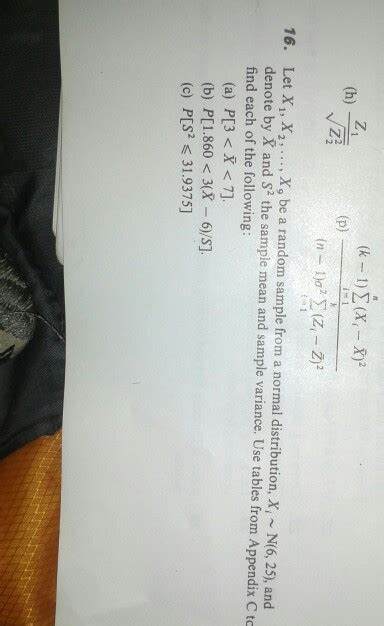 (h) Z₁ / √Z₂²
(p) (k − 1) ∑ᵢ₌₁ⁿ (Xᵢ − X̄)² / (n − 1)σ² ∑ᵢ₌₁ᵏ (Zᵢ − Z̄)²
16. Let X₁, X₂, ..., X₉ be a random sample from a normal distribution, Xᵢ ~ N(6, 25), and
denote by X̄ and S² the sample mean and sample variance. Use tables from Appendix C to
find each of the following:
(a) P[3 < X̄ < 7].
(b) P[1.860 < 3(X̄ − 6)/S].
(c) P[S² ⩽ 31.9375]